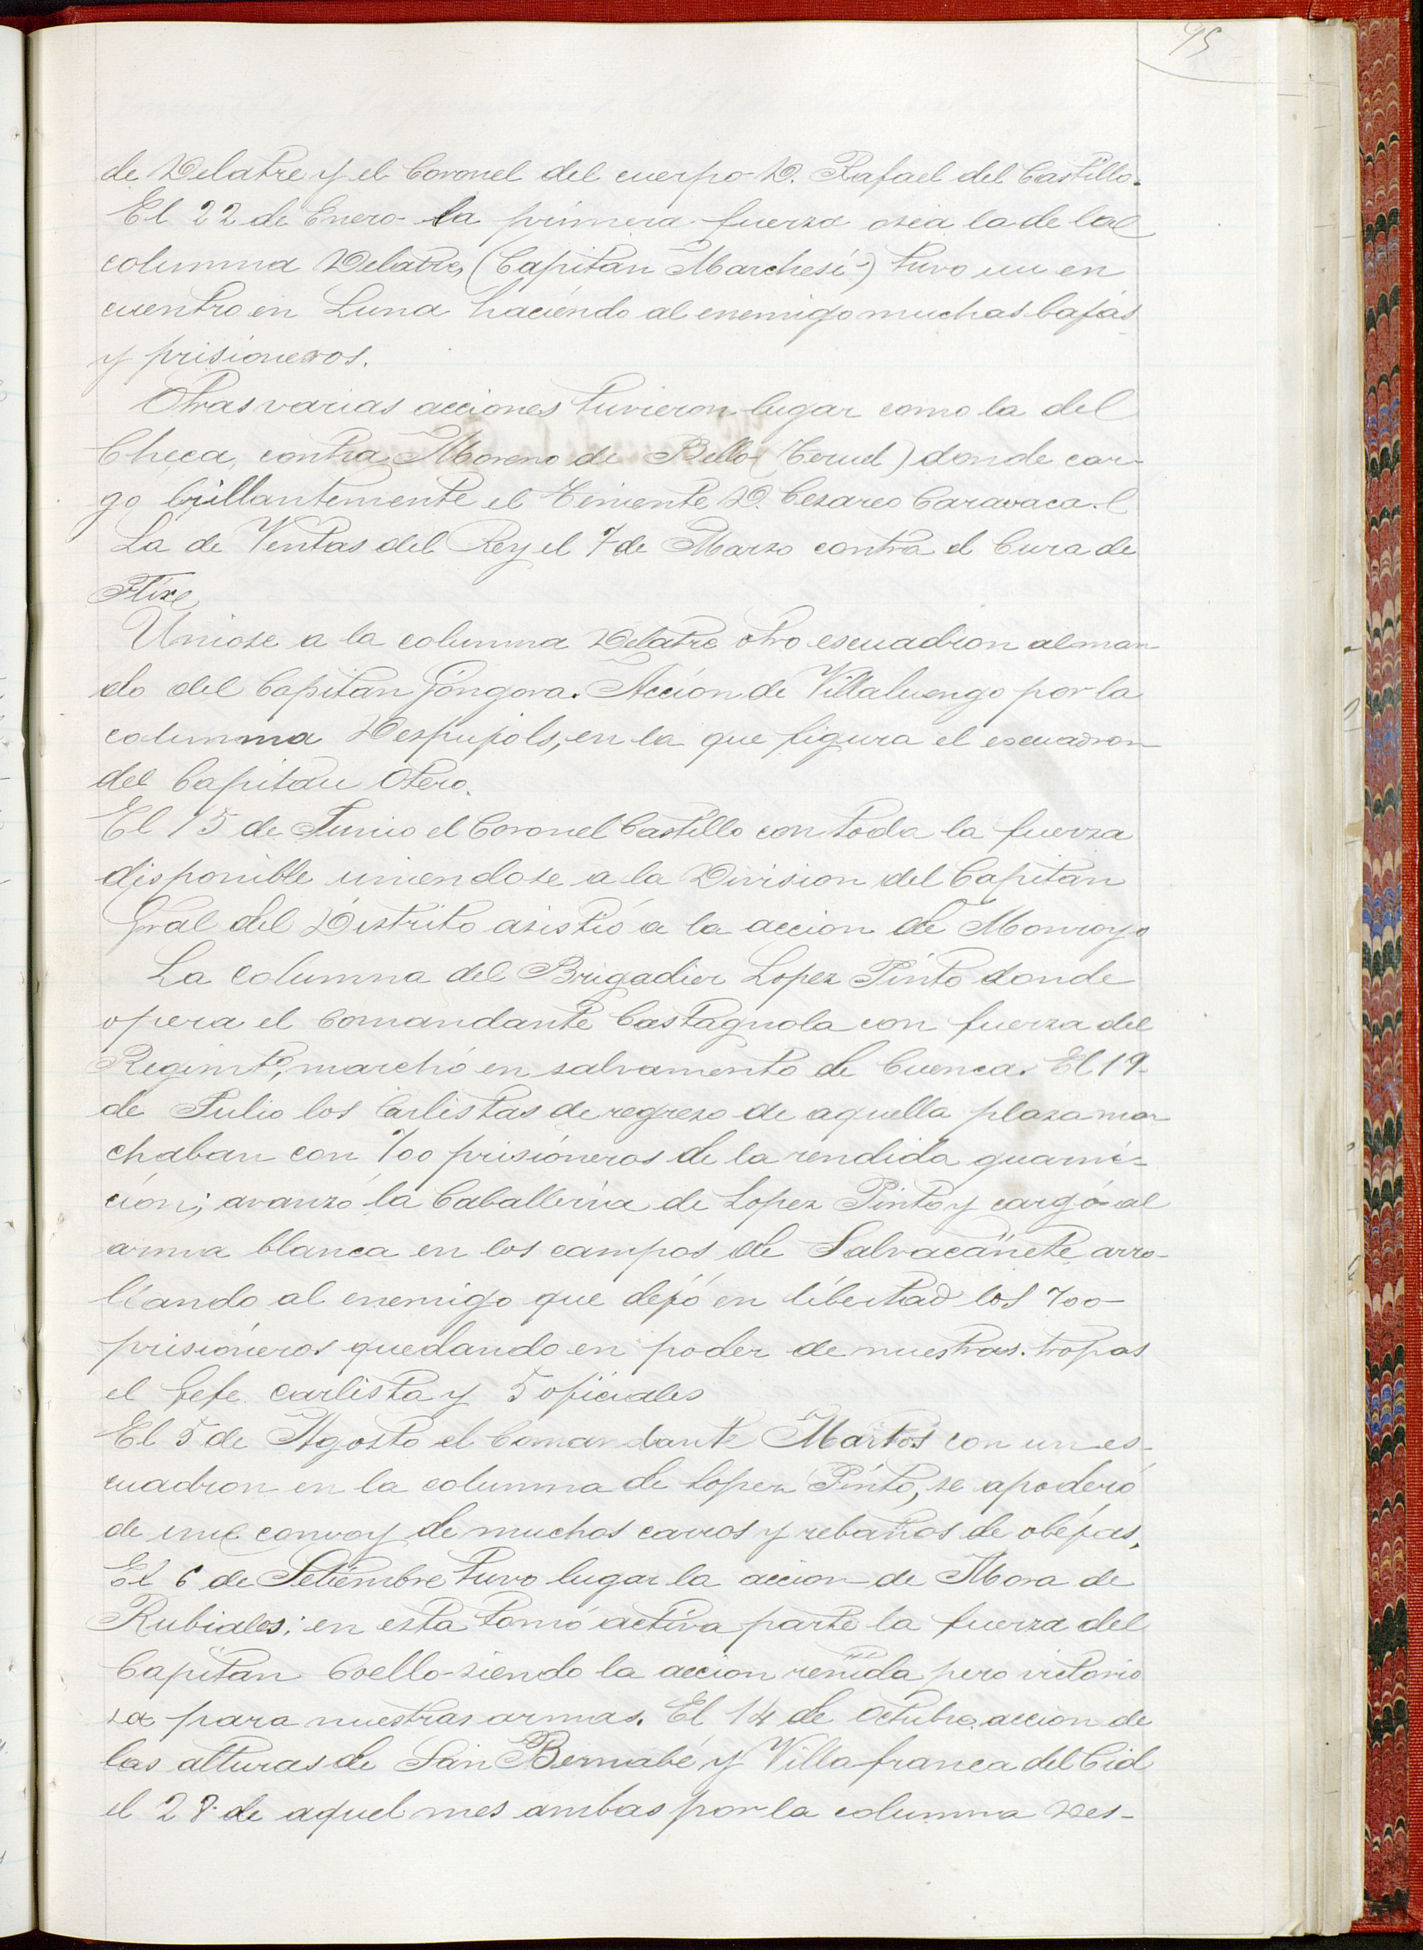 95
de Delatre y el Coronel del cuerpo D. Rafael del Castillo.
El 22 de Enero la primera fuerza osea la de la
columna Delatre, (Capitan Marchesi) tuvo un en
cuentro en Luna haciendo al enemigo muchas bajas
y prisioneros.
Otras varias acciones tuvieron lugar como la del
Checa, contra Moreno de Bello (Teruel) donde car-
go brillantemente el Teniente D. Cesareo Caravaca.
La de Ventas del Rey el 7 de Marzo contra el Cura de
Flix
Uniose a la columna Delatre otro escuadron al man
do del Capitan Góngora. Accion de Villaluengo por la
columna Despujols, en la que figura el escuadron
del Capitan Otero.
El 15 de Junio el Coronel Castillo con toda la fuerza
disponible uniendose a la Division del Capitan
Gral del Distrito asistió a la accion de Monroyo
La columna del Brigadier Lopez Pinto donde
opera el Comandante Castagnola con fuerza del
Regimto, marchó en salvamento de Cuenca. El 19
de Julio los Carlistas de regreso de aquella plaza mar
chaban con 700 prisioneros de la rendida guarni-
ción; avanzó la Caballeria de Lopez Pinto y cargó al
arma blanca en los campos de Salvacañete arro-
llando al enemigo que dejó en libertad los 700
prisioneros quedando en poder de nuestras tropas
el Gefe carlista y 5 oficiales
El 5 de Agosto el Comandante Martos con un es-
cuadron en la columna de Lopez Pinto, se apoderó
de un convoy de muchos carros y rebaños de obejas,
El 6 de Setiembre tuvo lugar la accion de Mora de
Rubiales; en esta tomó activa parte la fuerza del
Capitan Coello siendo la accion reñida pero victorio
sa para nuestras armas. El 14 de Octubre accion de
las alturas de San Bernabé y Villafranca del Cid
el 28 de aquel mes ambas por la columna Des-